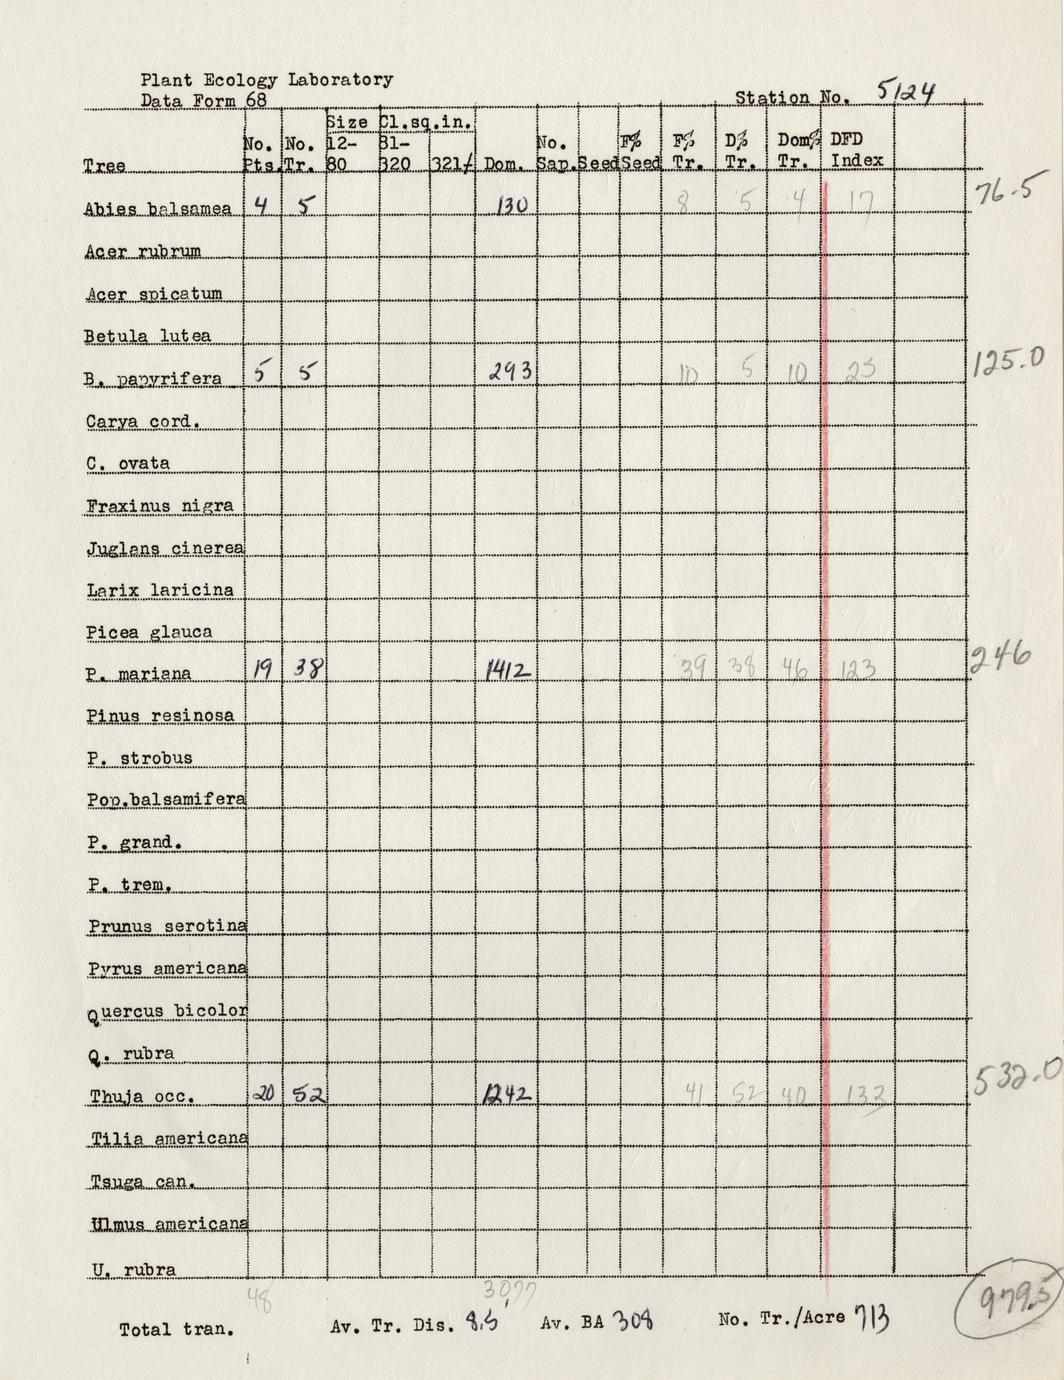 Plant Ecology Laboratory
Data Form 68
Station No. 5124
Size Cl.sq.in.
No. No. 12- 81- No. F% F% D% Dom% DFD
Tree Pts. Tr. 80 320 321/ Dom. Sap. Seed Seed Tr. Tr. Tr. Index
Abies balsamea 4 5 130 8 5 4 17 76.5
Acer rubrum
Acer spicatum
Betula lutea
B. papyrifera 5 5 293 10 5 10 25 125.0
Carya cord.
C. ovata
Fraxinus nigra
Juglans cinerea
Larix laricina
Picea glauca
P. mariana 19 38 1412 39 38 46 123 246
Pinus resinosa
P. strobus
Pop.balsamifera
P. grand.
P. trem.
Prunus serotina
Pyrus americana
Quercus bicolor
Q. rubra
Thuja occ. 20 52 1242 41 52 40 133 532.0
Tilia americana
Tsuga can.
Ulmus americana
U. rubra
48 3077 979.5
Total tran. Av. Tr. Dis. 8.5 Av. BA 308 No. Tr./Acre 713